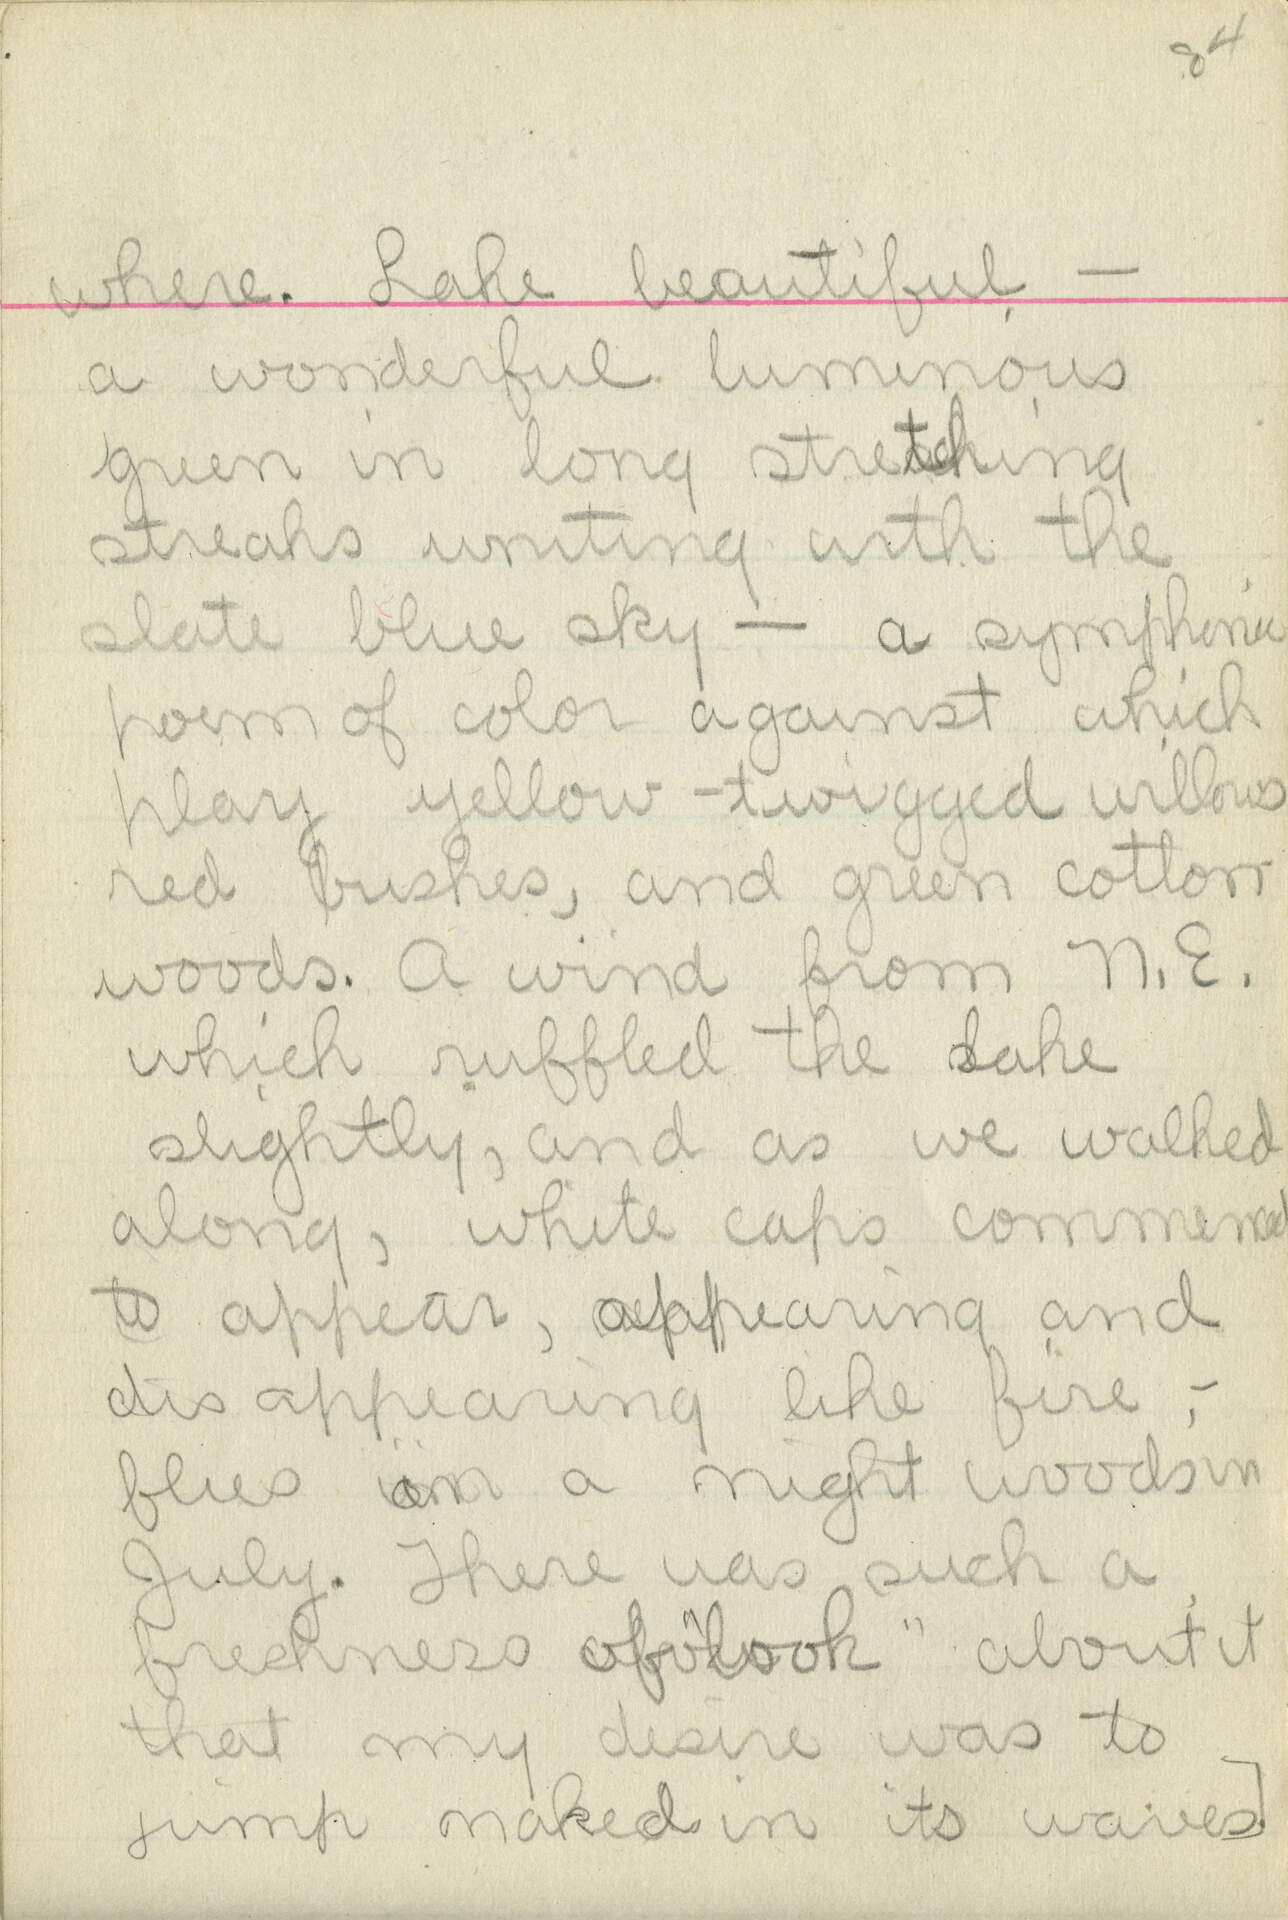 84
where. Lake beautiful —
a wonderful luminous
green in long stretching
streaks uniting with the
slate blue sky — a symphonic
poem of color against which
play yellow-twigged willows
red bushes, and green cotton
woods. A wind from N.E.
which ruffled the Lake
slightly, and as we walked
along, white caps commenced
to appear, appearing and
disappearing like fire,-
flies in a night woods in
July. There was such a
freshness of "look" about it
that my desire was to
jump naked in its waves.]